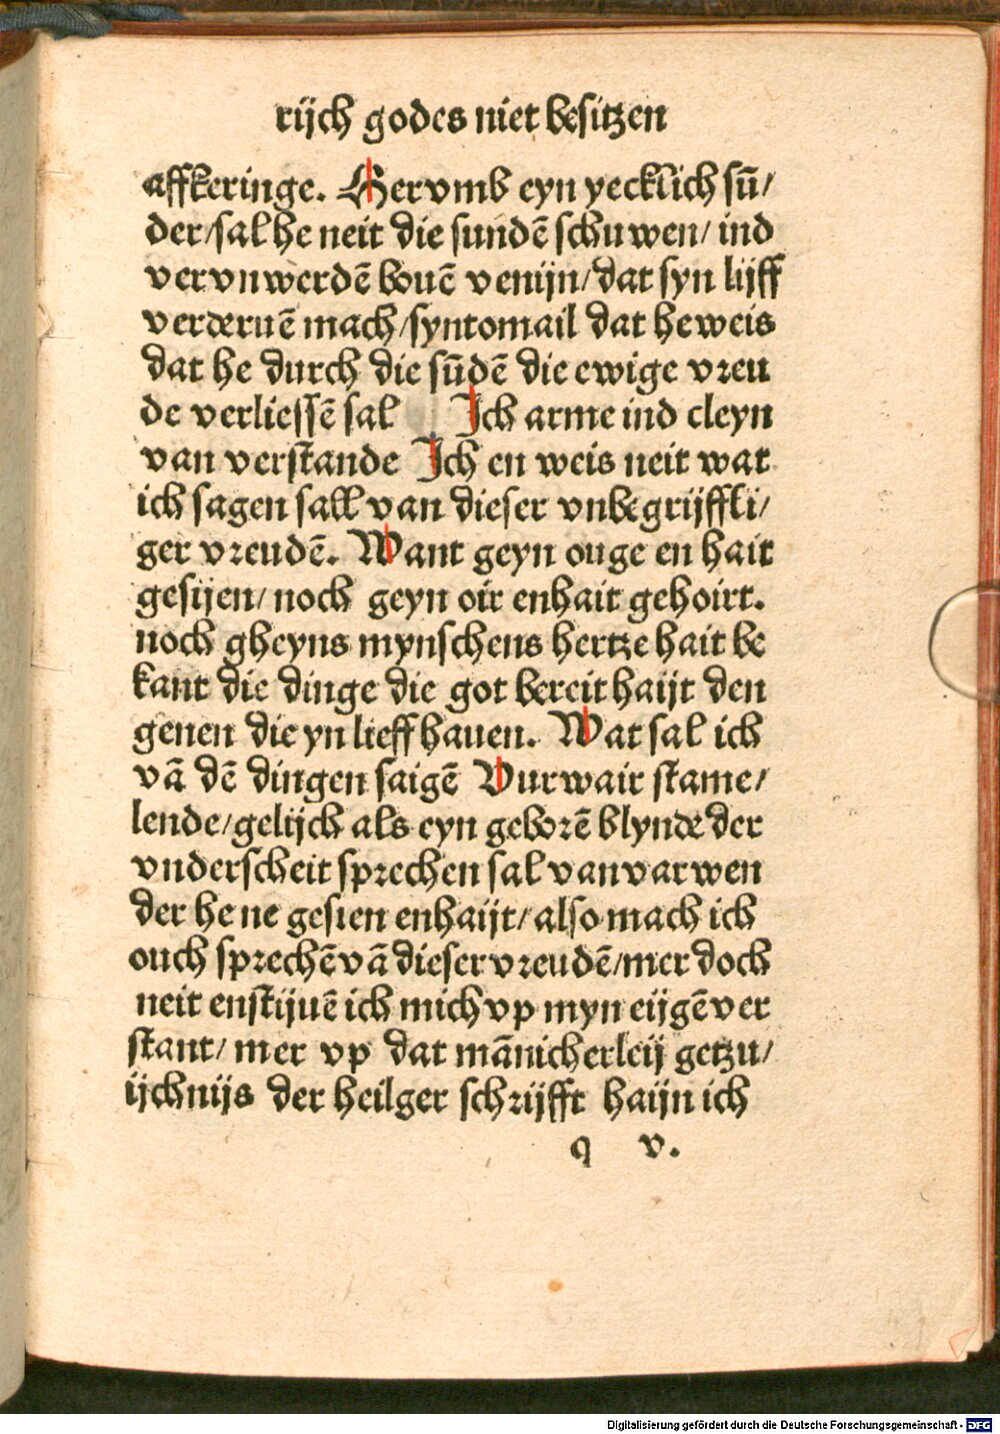 rijch godes niet besitzen
affkeringe. Hervmb eyn yecklich sū/
der/sal he neit die sundē schuwen/ ind
vervnwerdē bouē venijn/dat syn lijff
verderuē mach/syntomail dat he weis
dat he durch die sūdē die ewige vreu
de verliessē sal Ich arme ind cleyn
van verstande Ich en weis neit wat
ich sagen sall van dieser vnbegrijffli/
ger vreudē. Want geyn ouge en hait
gesijen/ noch geyn oir enhait gehoirt.
noch gheyns mynschens hertze hait be
kant die dinge die got bereit haijt den
genen die yn lieff hauen. Wat sal ich
vā dē dingen saigē Vurwair stame/
lende/gelijch als eyn geborē blynde der
vnderscheit sprechen sal van varwen
der he ne gesien enhaijt/also mach ich
ouch sprechē vā dieser vreudē/mer doch
neit enstijuē ich mich vp myn eijgē ver
stant/ mer vp dat mānicherleij getzu/
ijchnijs der heilger schrijfft haijn ich
q v.
Digitalisierung gefördert durch die Deutsche Forschungsgemeinschaft - DFG